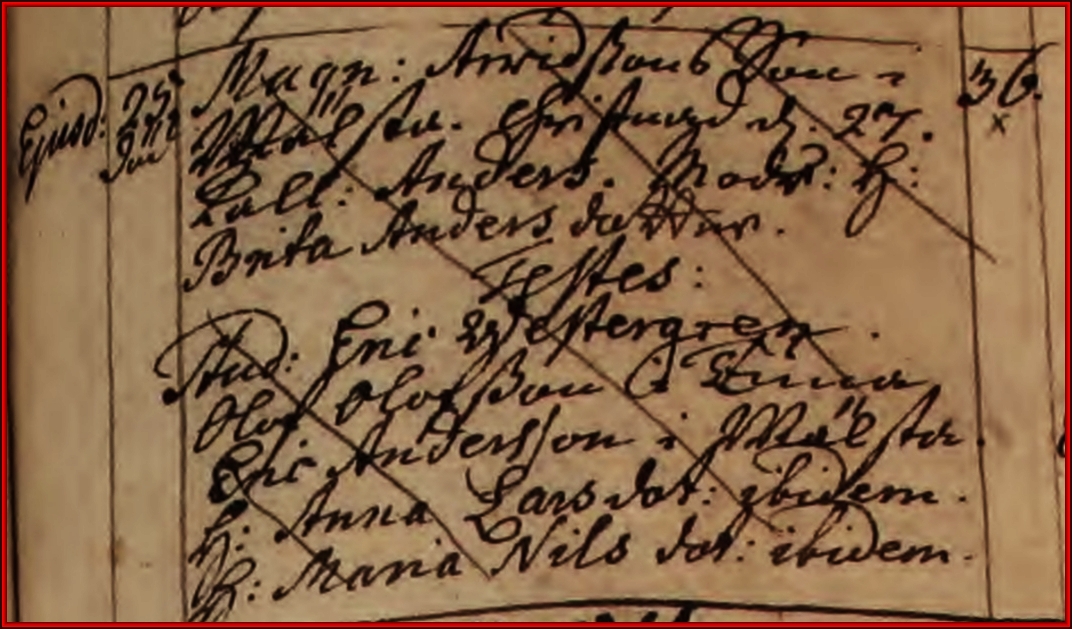 Ejusd: 25 Magn: Arvidssons Son i 36.
Jan Mälsta. Christnad d. 27. x
Kall: Anders. Modr: H:
Brita Anders dotter.
Testes:
Stud: Eric Westergren.
Olof Olofsson i
Eric Andersson i Mälsta.
H: Anna Lars dot: ibidem.
H: Maria Nils dot: ibidem.